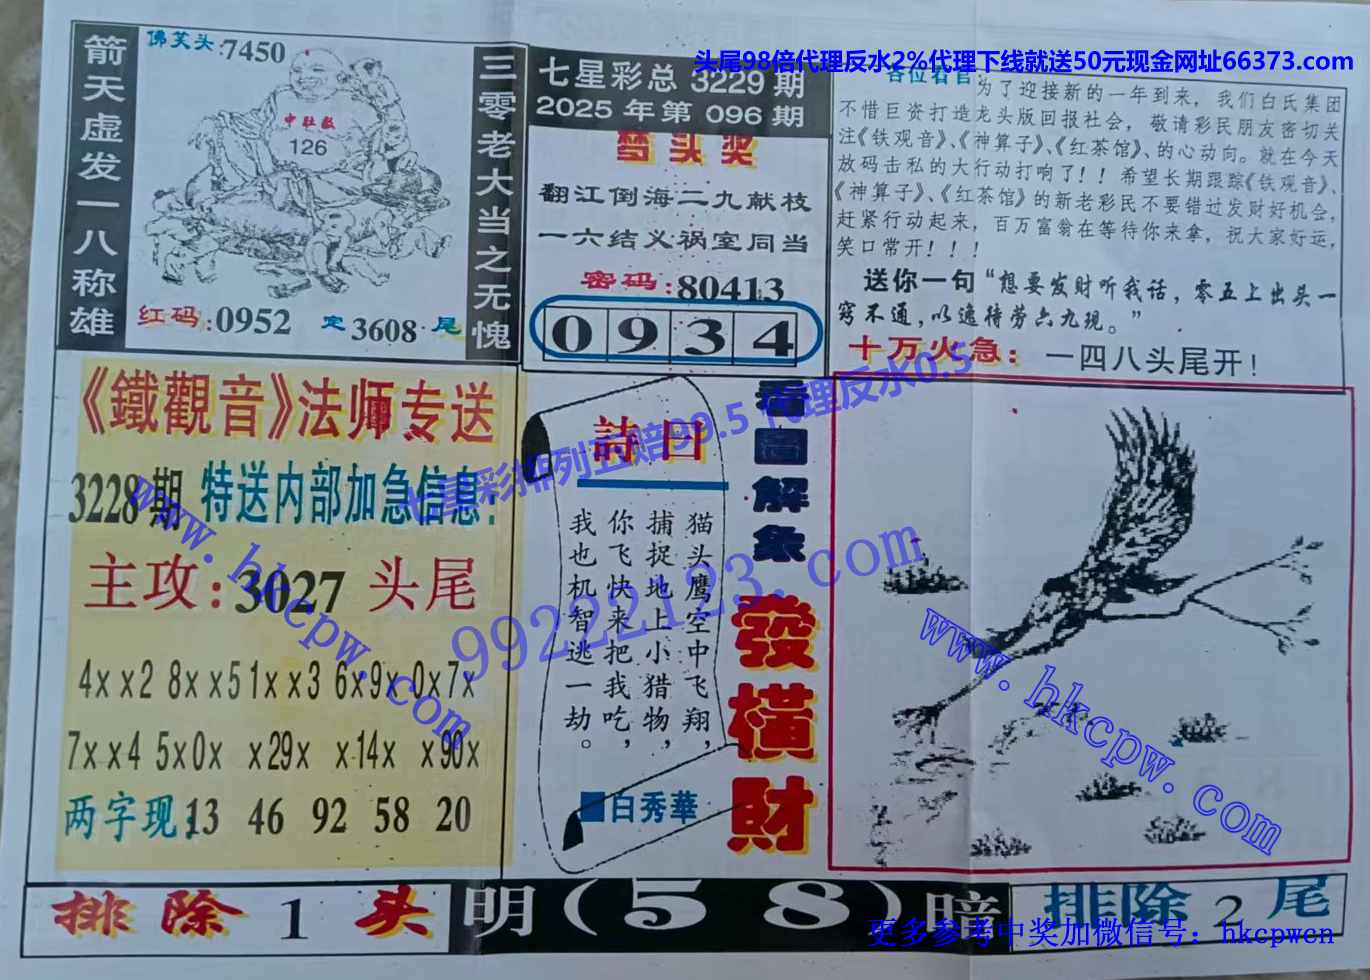 头尾98倍代理反水2%代理下线就送50元现金网址66373.com
箭天虚发一八称雄
佛笑头:7450
中肚数
126
红码:0952
定3608·尾
三零老大当之无愧
七星彩总 3229 期
2025 年 第 096 期
梦头奖
翻江倒海二九献枝
一六结义祸室同当
密码:80413
0 9 3 4
各位看官
为了迎接新的一年到来，我们白氏集团
不惜巨资打造龙头版回报社会，敬请彩民朋友密切关
注《铁观音》、《神算子》、《红茶馆》、的心动向。就在今天
放码击私的大行动打响了！！希望长期跟踪《铁观音》、
《神算子》、《红茶馆》的新老彩民不要错过发财好机会，
赶紧行动起来，百万富翁在等待你来拿，祝大家好运，
笑口常开！！！
送你一句“想要发财听我话，零五上出头一
窍不通，以逸待劳六九现。”
十万火急：一四八头尾开！
《鐵觀音》法师专送
3228期 特送内部加急信息：
主攻：3027 头尾
4xx2 8xx5 1xx3 6x9x 0x7x
7xx4 5x0x x29x x14x x90x
两字现：13 46 92 58 20
詩曰
猫头鹰空中飞翔，
捕捉地上小猎物，
你飞快来把我吃，
我也机智逃一劫。
白秀華
看图解象
發橫財
七星彩排列五赔99.5 代理反水0.5
99222123.com
www.hkcpw.com
www.hkcpw.com
排除 1 头
明(58)暗
排除 2 尾
更多参考中奖加微信号：hkcpwcn